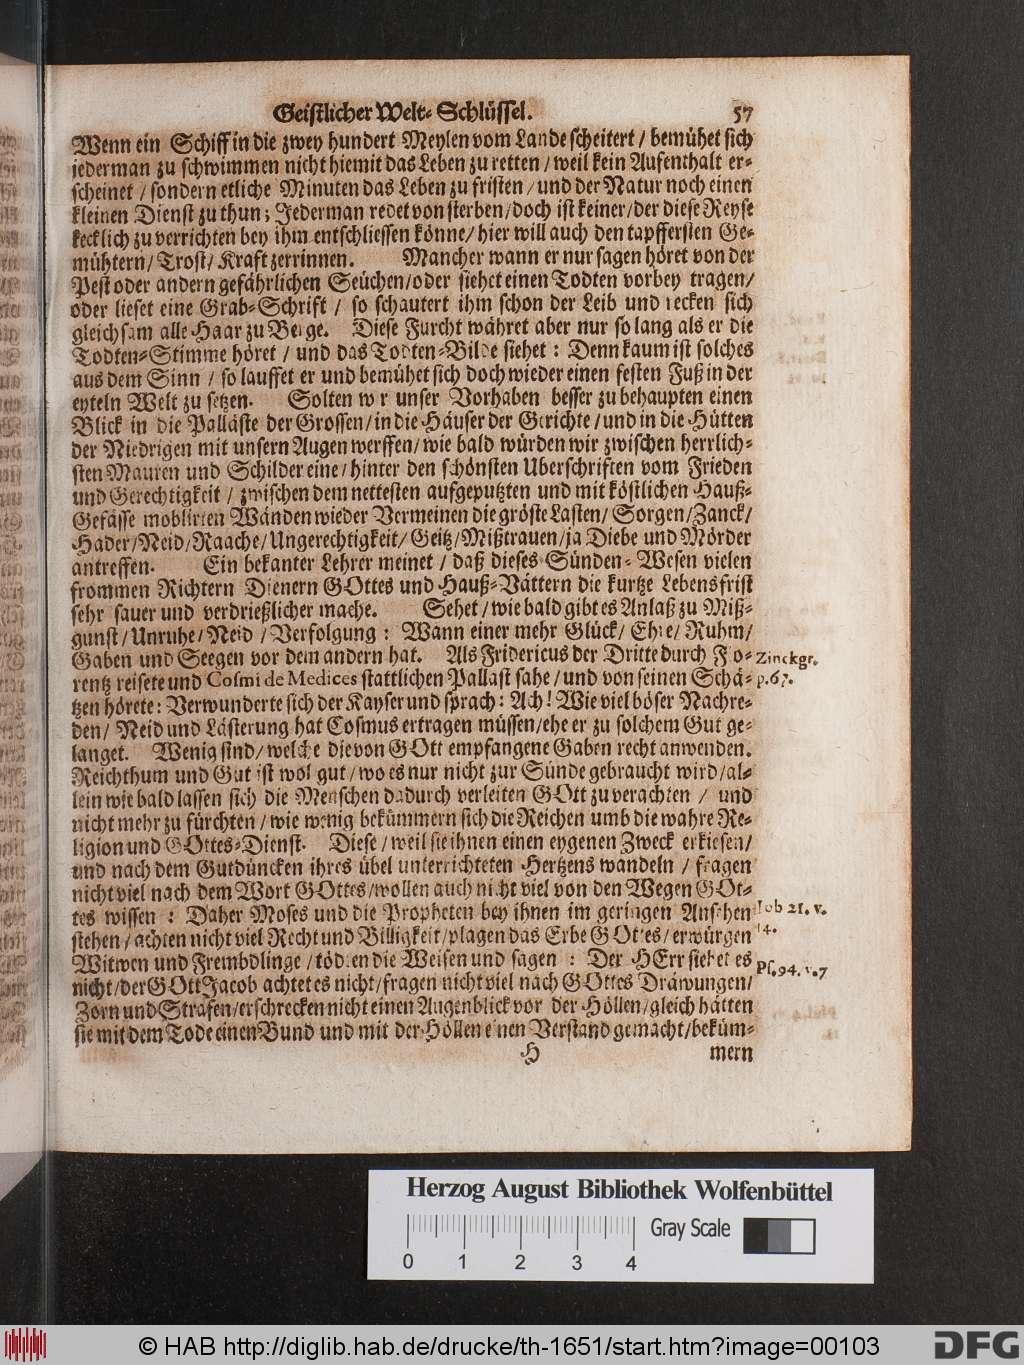 Geistlicher Welt-Schlüssel. 57
Wenn ein Schiff in die zwey hundert Meylen vom Lande scheitert / bemühet sich
jederman zu schwimmen nicht hiemit das Leben zu retten / weil kein Aufenthalt er-
scheinet / sondern etliche Minuten das Leben zu fristen / und der Natur noch einen
kleinen Dienst zu thun; Jederman redet von sterben / doch ist keiner / der diese Reyse
kecklich zu verrichten bey ihm entschliessen könne / hier will auch den tapffersten Ge-
mühtern / Trost / Kraft zerrinnen. Mancher wann er nur sagen höret von der
Pest oder andern gefährlichen Seüchen / oder siehet einen Todten vorbey tragen /
oder lieset eine Grab-Schrift / so schautert ihm schon der Leib und recken sich
gleichsam alle Haar zu Berge. Diese Furcht währet aber nur so lang als er die
Todten-Stimme höret / und das Todten-Bilde siehet : Denn kaum ist solches
aus dem Sinn / so lauffet er und bemühet sich doch wieder einen festen Fuß in der
eyteln Welt zu setzen. Solten wir unser Vorhaben besser zu behaupten einen
Blick in die Palläste der Grossen / in die Häuser der Gerichte / und in die Hütten
der Niedrigen mit unsern Augen werffen / wie bald würden wir zwischen herrlich-
sten Mauren und Schildereine / hinter den schönsten Uberschriften vom Frieden
und Gerechtigkeit / zwischen dem nettesten aufgeputzten und mit köstlichen Hauß-
Gefässe moblirten Wänden wieder Vermeinen die gröste Lasten / Sorgen / Zanck /
Hader / Neid / Raache / Ungerechtigkeit / Geitz / Mißtrauen / ja Diebe und Mörder
antreffen. Ein bekanter Lehrer meinet / daß dieses Sünden-Wesen vielen
frommen Richtern Dienern GOttes und Hauß-Vättern die kurtze Lebensfrist
sehr sauer und verdrießlicher mache. Sehet / wie bald gibt es Anlaß zu Miß-
gunst / Unruhe / Neid / Verfolgung : Wann einer mehr Glück / Ehre / Ruhm /
Gaben und Seegen vor dem andern hat. Als Fridericus der Dritte durch Flo-
rentz reisete und Cosmi de Medices stattlichen Pallast sahe / und von seinen Schä-
tzen hörete : Verwunderte sich der Kayser und sprach : Ach ! Wie viel böser Nachre-
den / Neid und Lästerung hat Cosmus ertragen müssen / ehe er zu solchem Gut ge-
langet. Wenig sind / welche die von GOtt empfangene Gaben recht anwenden.
Reichthum und Gut ist wol gut / wo es nur nicht zur Sünde gebraucht wird / al-
lein wie bald lassen sich die Menschen dadurch verleiten GOtt zu verachten / und
nicht mehr zu fürchten / wie wenig bekümmern sich die Reichen umb die wahre Re-
ligion und GOttes-Dienst. Diese / weil sie ihnen einen eygenen Zweck erkiesen /
und nach dem Gutdüncken ihres übel unterrichteten Hertzens wandeln / fragen
nicht viel nach dem Wort GOttes / wollen auch nicht viel von den Wegen GOt-
tes wissen : Daher Moses und die Propheten bey ihnen im geringen Ansehen
stehen / achten nicht viel Recht und Billigkeit / plagen das Erbe GOttes / erwürgen
Witwen und Frembdlinge / tödten die Weisen und sagen : Der HErr siehet es
nicht / der GOtt Jacob achtet es nicht / fragen nicht viel nach GOttes Dräwungen /
Zorn und Strafen / erschrecken nicht einen Augenblick vor der Höllen / gleich hätten
sie mit dem Tode einen Bund und mit der Höllen einen Verstand gemacht / beküm-
H mern
Zinckgr.
p. 67.
Iob 21. v.
14.
Ps. 94. v. 7
Herzog August Bibliothek Wolfenbüttel
Gray Scale
0 1 2 3 4
© HAB http://diglib.hab.de/drucke/th-1651/start.htm?image=00103
DFG